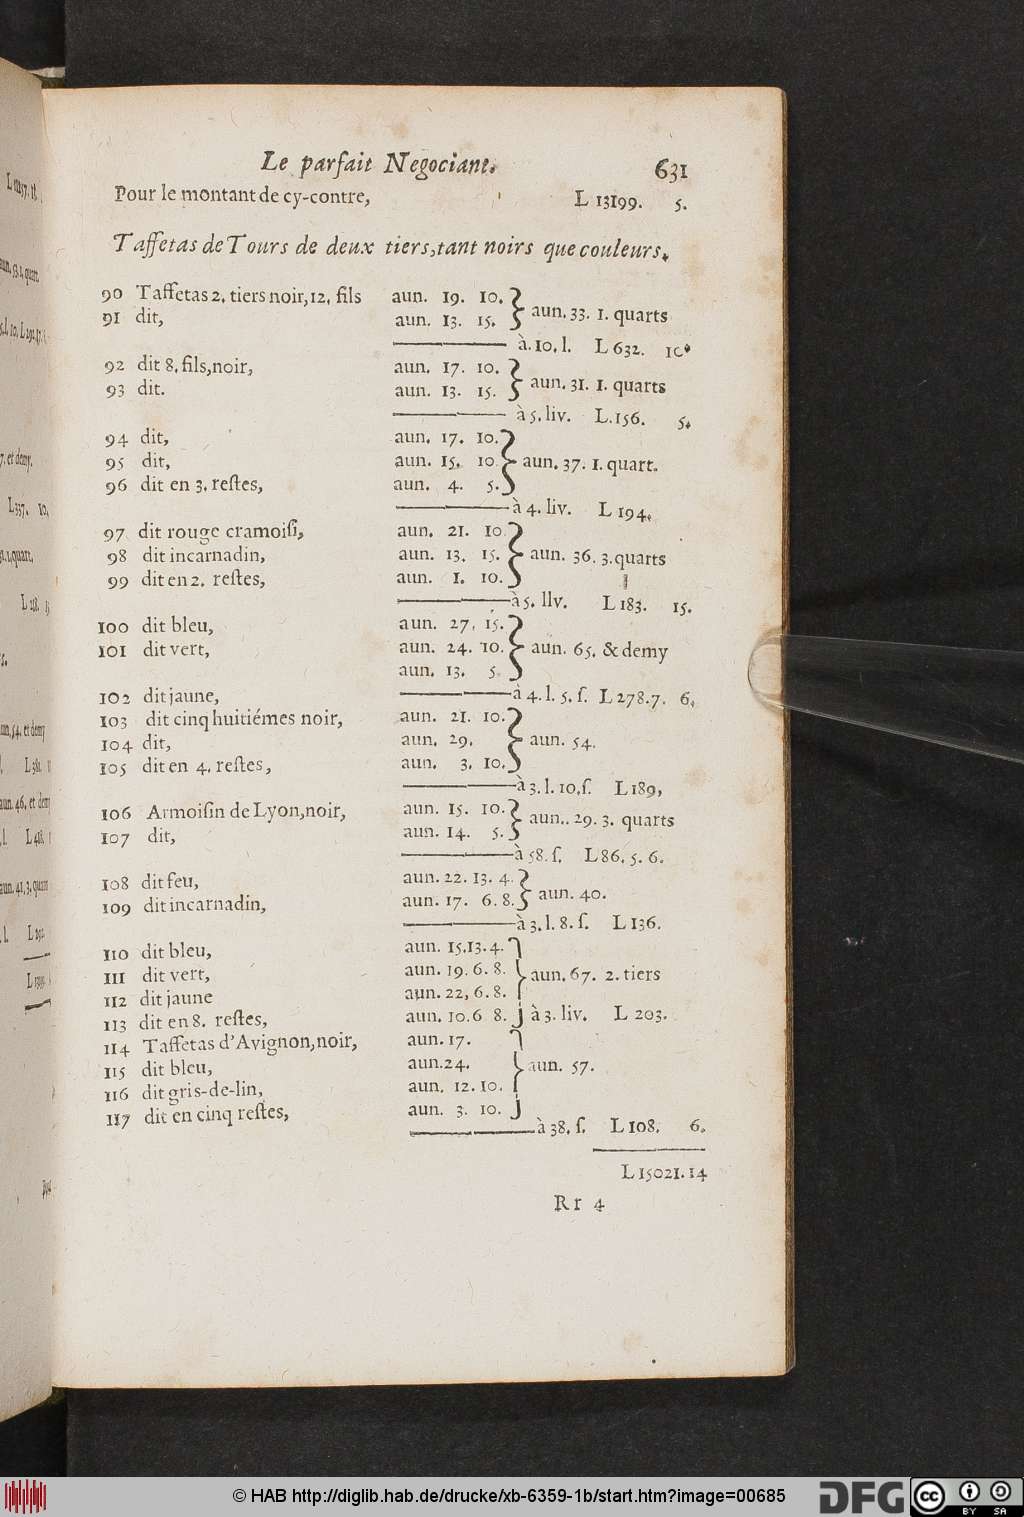 Le parfait Negociant. 631
Pour le montant de cy-contre, L 13199. 5.
Taffetas de Tours de deux tiers, tant noirs que couleurs.
90 Taffetas 2. tiers noir, 12. fils aun. 19. 10.
91 dit, aun. 13. 15. } aun. 33. 1. quarts
à 10. l. L 632. 10.
92 dit 8. fils, noir, aun. 17. 10.
93 dit. aun. 13. 15. } aun. 31. 1. quarts
à 5. liv. L. 156. 5.
94 dit, aun. 17. 10.
95 dit, aun. 15. 10 } aun. 37. 1. quart.
96 dit en 3. reſtes, aun. 4. 5.
à 4. liv. L 194.
97 dit rouge cramoiſi, aun. 21. 10
98 dit incarnadin, aun. 13. 15. } aun. 36. 3. quarts
99 dit en 2. reſtes, aun. 1. 10.
à 5. llv. L 183. 15.
100 dit bleu, aun. 27. 15.
101 dit vert, aun. 24. 10. } aun. 65. & demy
aun. 13. 5
102 dit jaune, à 4. l. 5. ſ. L 278. 7. 6.
103 dit cinq huitiémes noir, aun. 21. 10.
104 dit, aun. 29. } aun. 54.
105 dit en 4. reſtes, aun. 3. 10.
à 3. l. 10. ſ. L 189,
106 Armoiſin de Lyon, noir, aun. 15. 10.
107 dit, aun. 14. 5. } aun.. 29. 3. quarts
à 58. ſ. L 86. 5. 6.
108 dit feu, aun. 22. 13. 4.
109 dit incarnadin, aun. 17. 6. 8. } aun. 40.
à 3. l. 8. ſ. L 136.
110 dit bleu, aun. 15. 13. 4.
111 dit vert, aun. 19. 6. 8. } aun. 67. 2. tiers
112 dit jaune aun. 22, 6. 8.
113 dit en 8. reſtes, aun. 10. 6 8. à 3. liv. L 203.
114 Taffetas d'Avignon, noir, aun. 17.
115 dit bleu, aun. 24. } aun. 57.
116 dit gris-de-lin, aun. 12. 10.
117 dit en cinq reſtes, aun. 3. 10.
à 38. ſ. L 108. 6.
L 15021. 14
Rr 4
© HAB http://diglib.hab.de/drucke/xb-6359-1b/start.htm?image=00685
DFG cc BY SA